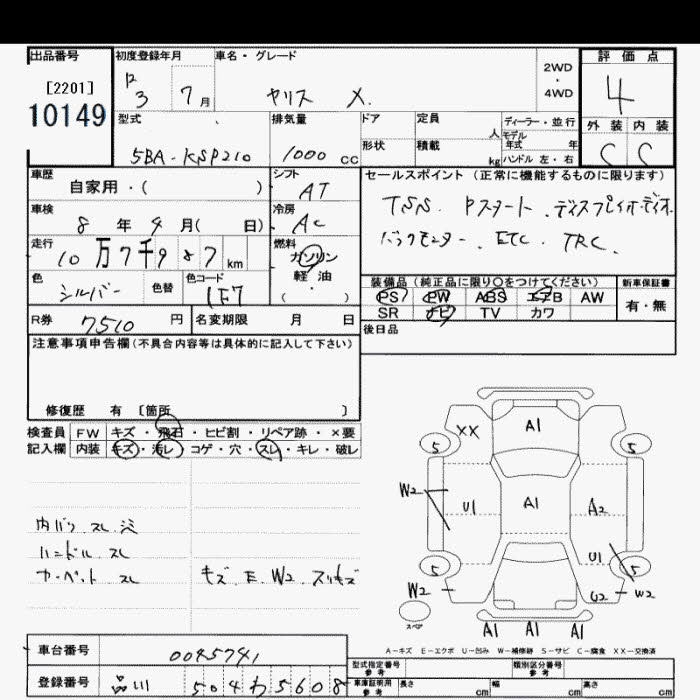 出品番号
[2201]
10149
初度登録年月
R3 7月
車名・グレード
ヤリス X
2WD
・
4WD
評価点
4
外装 内装
C C
型式
5BA-KSP210
排気量
1000 CC
ドア
形状
定員
人
積載
kg
ディーラー・並行
モデル
年式 年
ハンドル 左・右
車歴
自家用・( )
シフト
AT
セールスポイント (正常に機能するものに限ります)
TSS. Pスタート. ディスプレイオーディオ.
バックモニター. ETC. TRC.
車検
8年4月( 日)
冷房
AC
走行
10万7千987km
燃料
ガソリン
軽油
・
( )
色
シルバー
色替
色コード
1F7
装備品 (純正品に限り○をつけてください)
PS PW ABS エアB AW
SR ナビ TV カワ
新車保証書
有・無
R券 7510円
名変期限 月 日
後日品
注意事項申告欄(不具合内容等は具体的に記入して下さい)
修復歴 有 〔箇所 〕
検査員
記入欄
FW キズ・飛石・ヒビ割・リペア跡・×要
内装 キズ・汚レ・コゲ・穴・スレ・キレ・破レ
内バリ スレ 汚
ハンドル スレ
カーペット スレ
キズ E W2 スリキズ
XX A1
5 5
W2 U1 A1 A2
U1
5 5
W2 U2 W2
スペア
A1 A1 A1
A-キズ E-エクボ U-凹み W-補修跡 S-サビ C-腐食 XX-交換済
車台番号 0045741
登録番号 品川 504 わ 5608
型式指定番号
参考
類別区分番号
参考
車庫証明用
参考
長さ cm 幅 cm 高さ cm